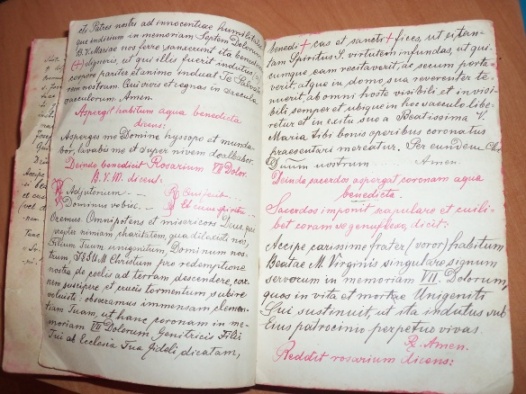 et Patres nostri ad innocentiae humilitatis
que indicium in memoriam Septem Dolorum
B. V. Mariae nos ferre sanxerunt ita benedicere
(+) digneris, ut qui illis fuerit indutus
corpore pariter et animo induat Te Salvato
rem nostrum. Qui vivis et regnas in saecula
saeculorum. Amen.
Aspergit habitum aqua benedicta
dicens:
Asperges me Domine hysopo et munda-
bor, lavabis me et super nivem dealbabor.
Deinde benedicit Rosarium VII Dolor.
B. V. M. dicens.
V. Adjutorium R. Qui fecit
V. Dominus vobisc. R. Et cum spiritu
Oremus Omnipotens et misericors Deus, qui
propter nimiam charitatem, qua dilexisti nos,
Filium Tuum unigenitum Dominum nos-
trum JESUM Christum pro redemptione
nostra de coelis ad terram descendere, car-
nem suscipere et crucis tormentum subire
voluisti: obsecramus immensam clemen-
tiam Tuam, ut hanc coronam in me-
moriam VII Dolorum Genitricis Filii
Tui ab Ecclesia Tua fideli dicatam,
benedi + cas et sancti + fices, ut ei tan-
tam Spiritus S. virtutem infundas, ut qui-
cumque eam recitaverit, ac secum porta-
verit, atque in domo sua reverenter te-
nuerit, ab omni hoste visibili et invisi-
bili semper et ubique in hoc saeculo libe-
retur et in exitu suo a Beatissima V.
Maria Tibi bonis operibus coronatus
praesentari mereatur. Per eundem Chr.
Dnum nostrum. Amen.
Deinde sacerdos aspergat coronam aqua
benedicta.
Sacerdos imponit scapulare et cuili-
bet coram eo genuflexo dicit:
Accipe carissime frater, (soror) habitum
Beatae M. Virginis singulare signum
servorum in memoriam VII. Dolorum,
quos in vita et morte Unigeniti
Sui sustinuit, ut ita indutus sub
Eius patrocinio perpetuo vivas.
R. Amen.
Reddit rosarium dicens: